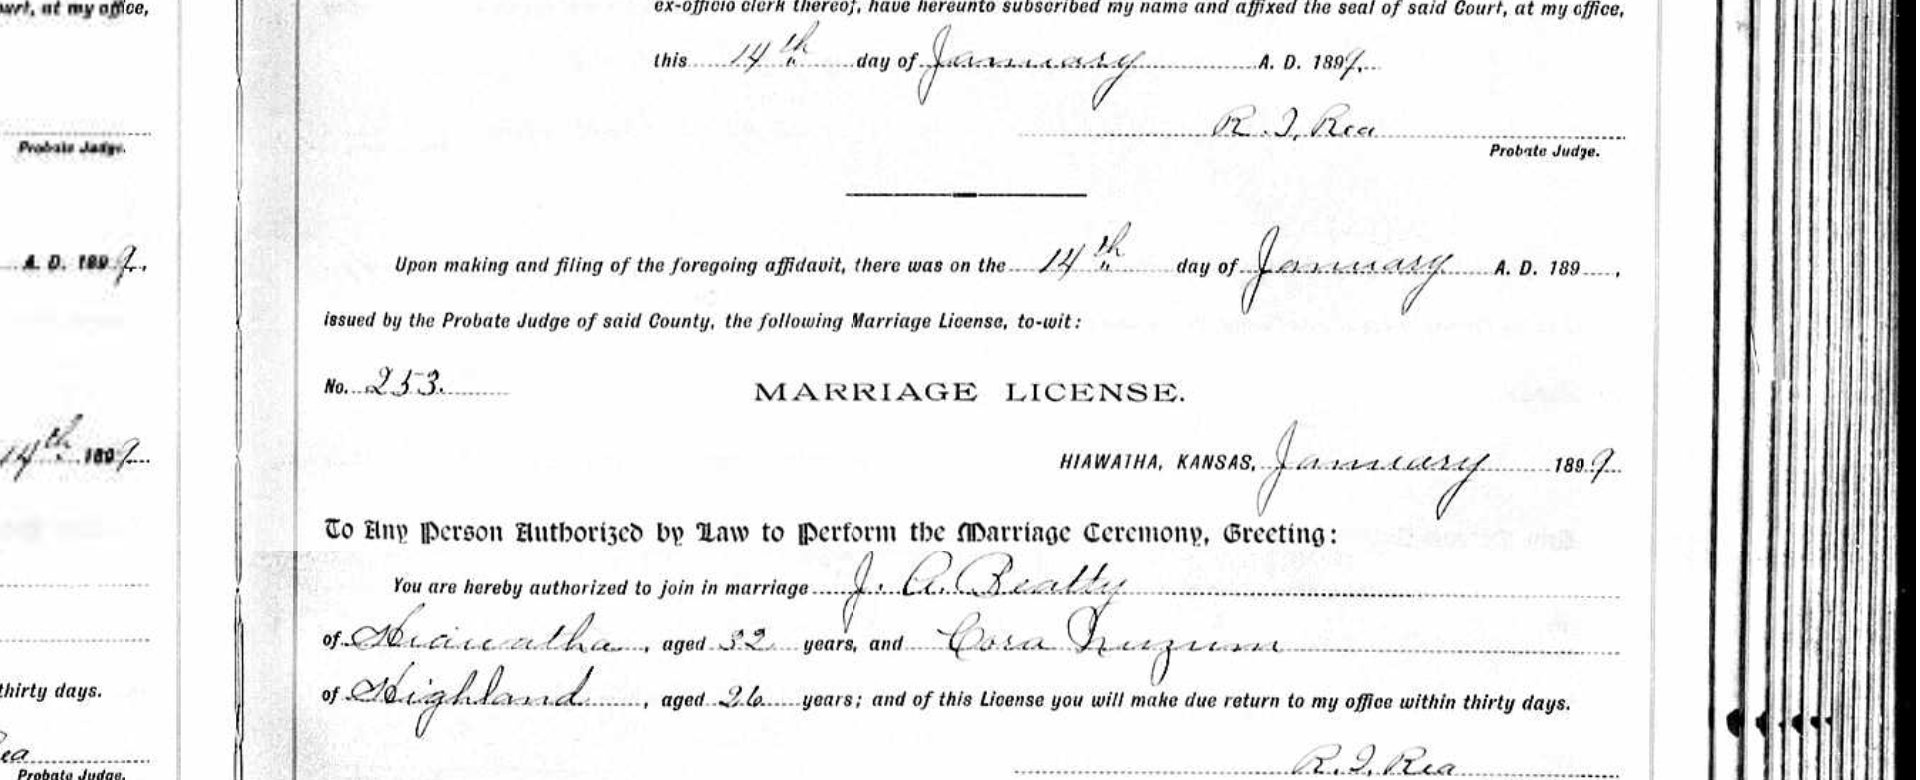 urt, at my office,
Probate Judge.
A. D. 1899.,
14th 1899.
thirty days.
ea
Probate Judge.
ex-officio clerk thereof, have hereunto subscribed my name and affixed the seal of said Court, at my office,
this 14th day of January A. D. 1899.
R. I. Rea
Probate Judge.
Upon making and filing of the foregoing affidavit, there was on the 14th day of January A. D. 189 ,
issued by the Probate Judge of said County, the following Marriage License, to-wit:
No. 253.
MARRIAGE LICENSE.
HIAWATHA, KANSAS, January 1899.
To Any Person Authorized by Law to Perform the Marriage Ceremony, Greeting:
You are hereby authorized to join in marriage J. A. Beatty
of Hiawatha, aged 32 years, and Cora Nuzum
of Highland, aged 26 years; and of this License you will make due return to my office within thirty days.
R. I. Rea